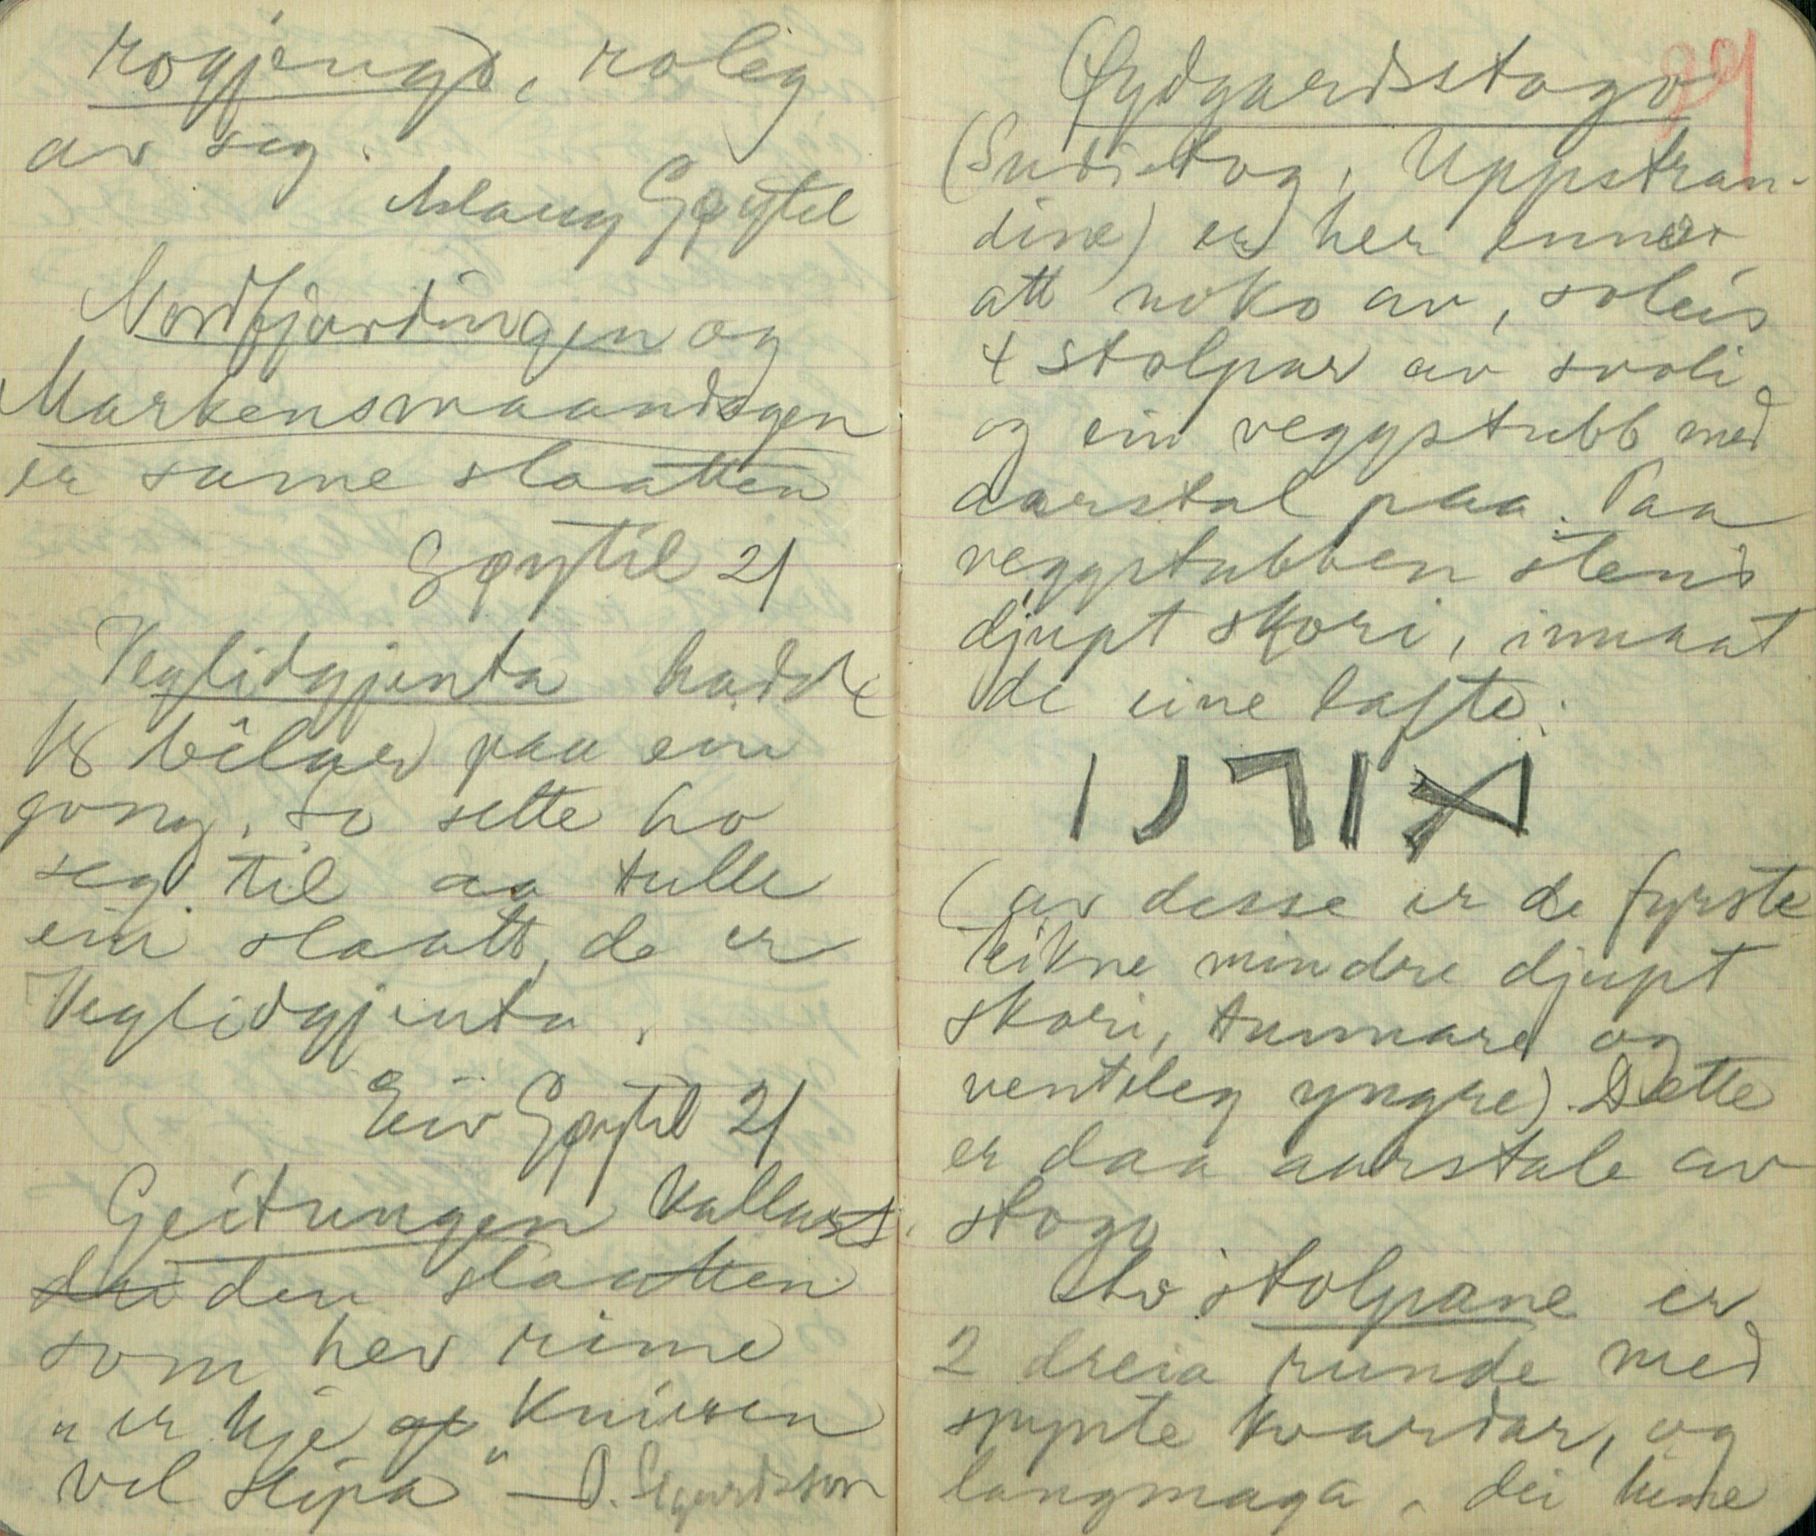 rogjengd, roleg
av seg.
Aslaug Gøytil
Nordfjordingen og
Markensmaandagen
er same slaatten
Gøytil 21
Veglidgjenta hadde
18 bêlar paa ein
gong, so sette ho
seg til aa tulle
ein slaatt, de er
Veglidgjenta.
Eiv Gøytil 21
Geitungen kallast
dei den slaatten
som hev rime
"er kje gø kniven
vel slipa" — O. Sigurdsson
29
Øydgardsstogo
(Sudistog, Uppstran-
dine) er her enno
att noko av, soleis
4 stolpar av svoli
og ein veggstubb med
aarstal paa. Paa
veggstubben stend
djupt skori, innaat
de eine lafte:
(av desse er de fyrste
teikne mindre djupt
skori, tunnare og
venteleg yngre). Dette
er daa aarstale av
stogo
Av stolpane er
2 dreia runde med
snynte kvardar, og
langmaga, dei hine